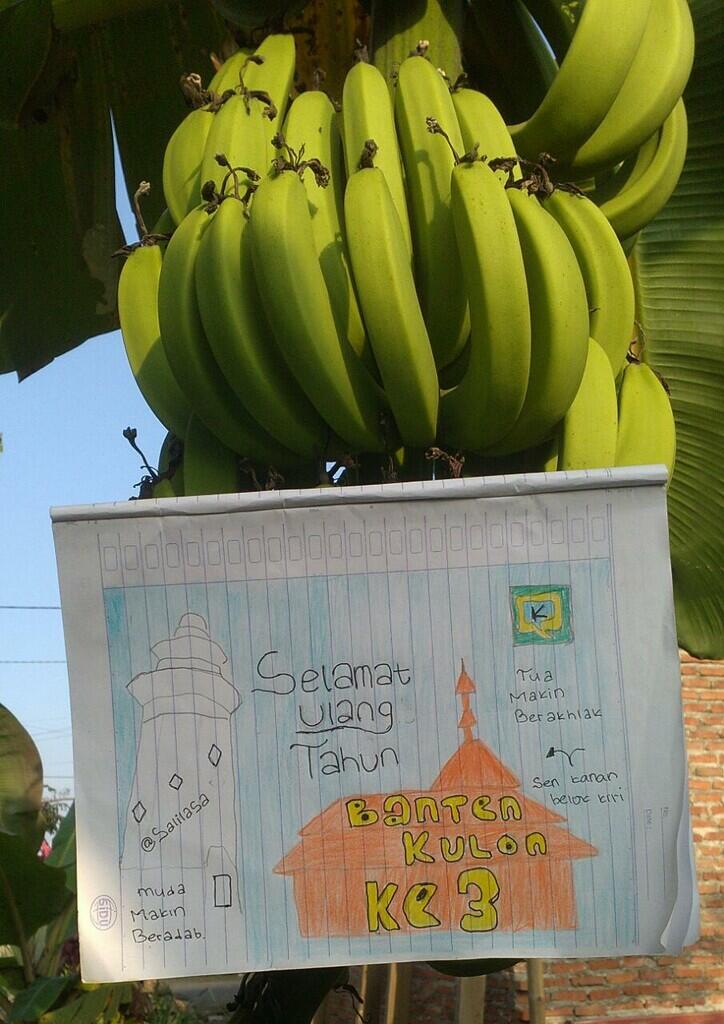 K
Selamat
Ulang
Tahun
Tua
Makin
Berakhlak
Sen kanan
belok kiri
@Salilasa
Banten
Kulon
Ke 3
muda
Makin
Beradab.
SIDU